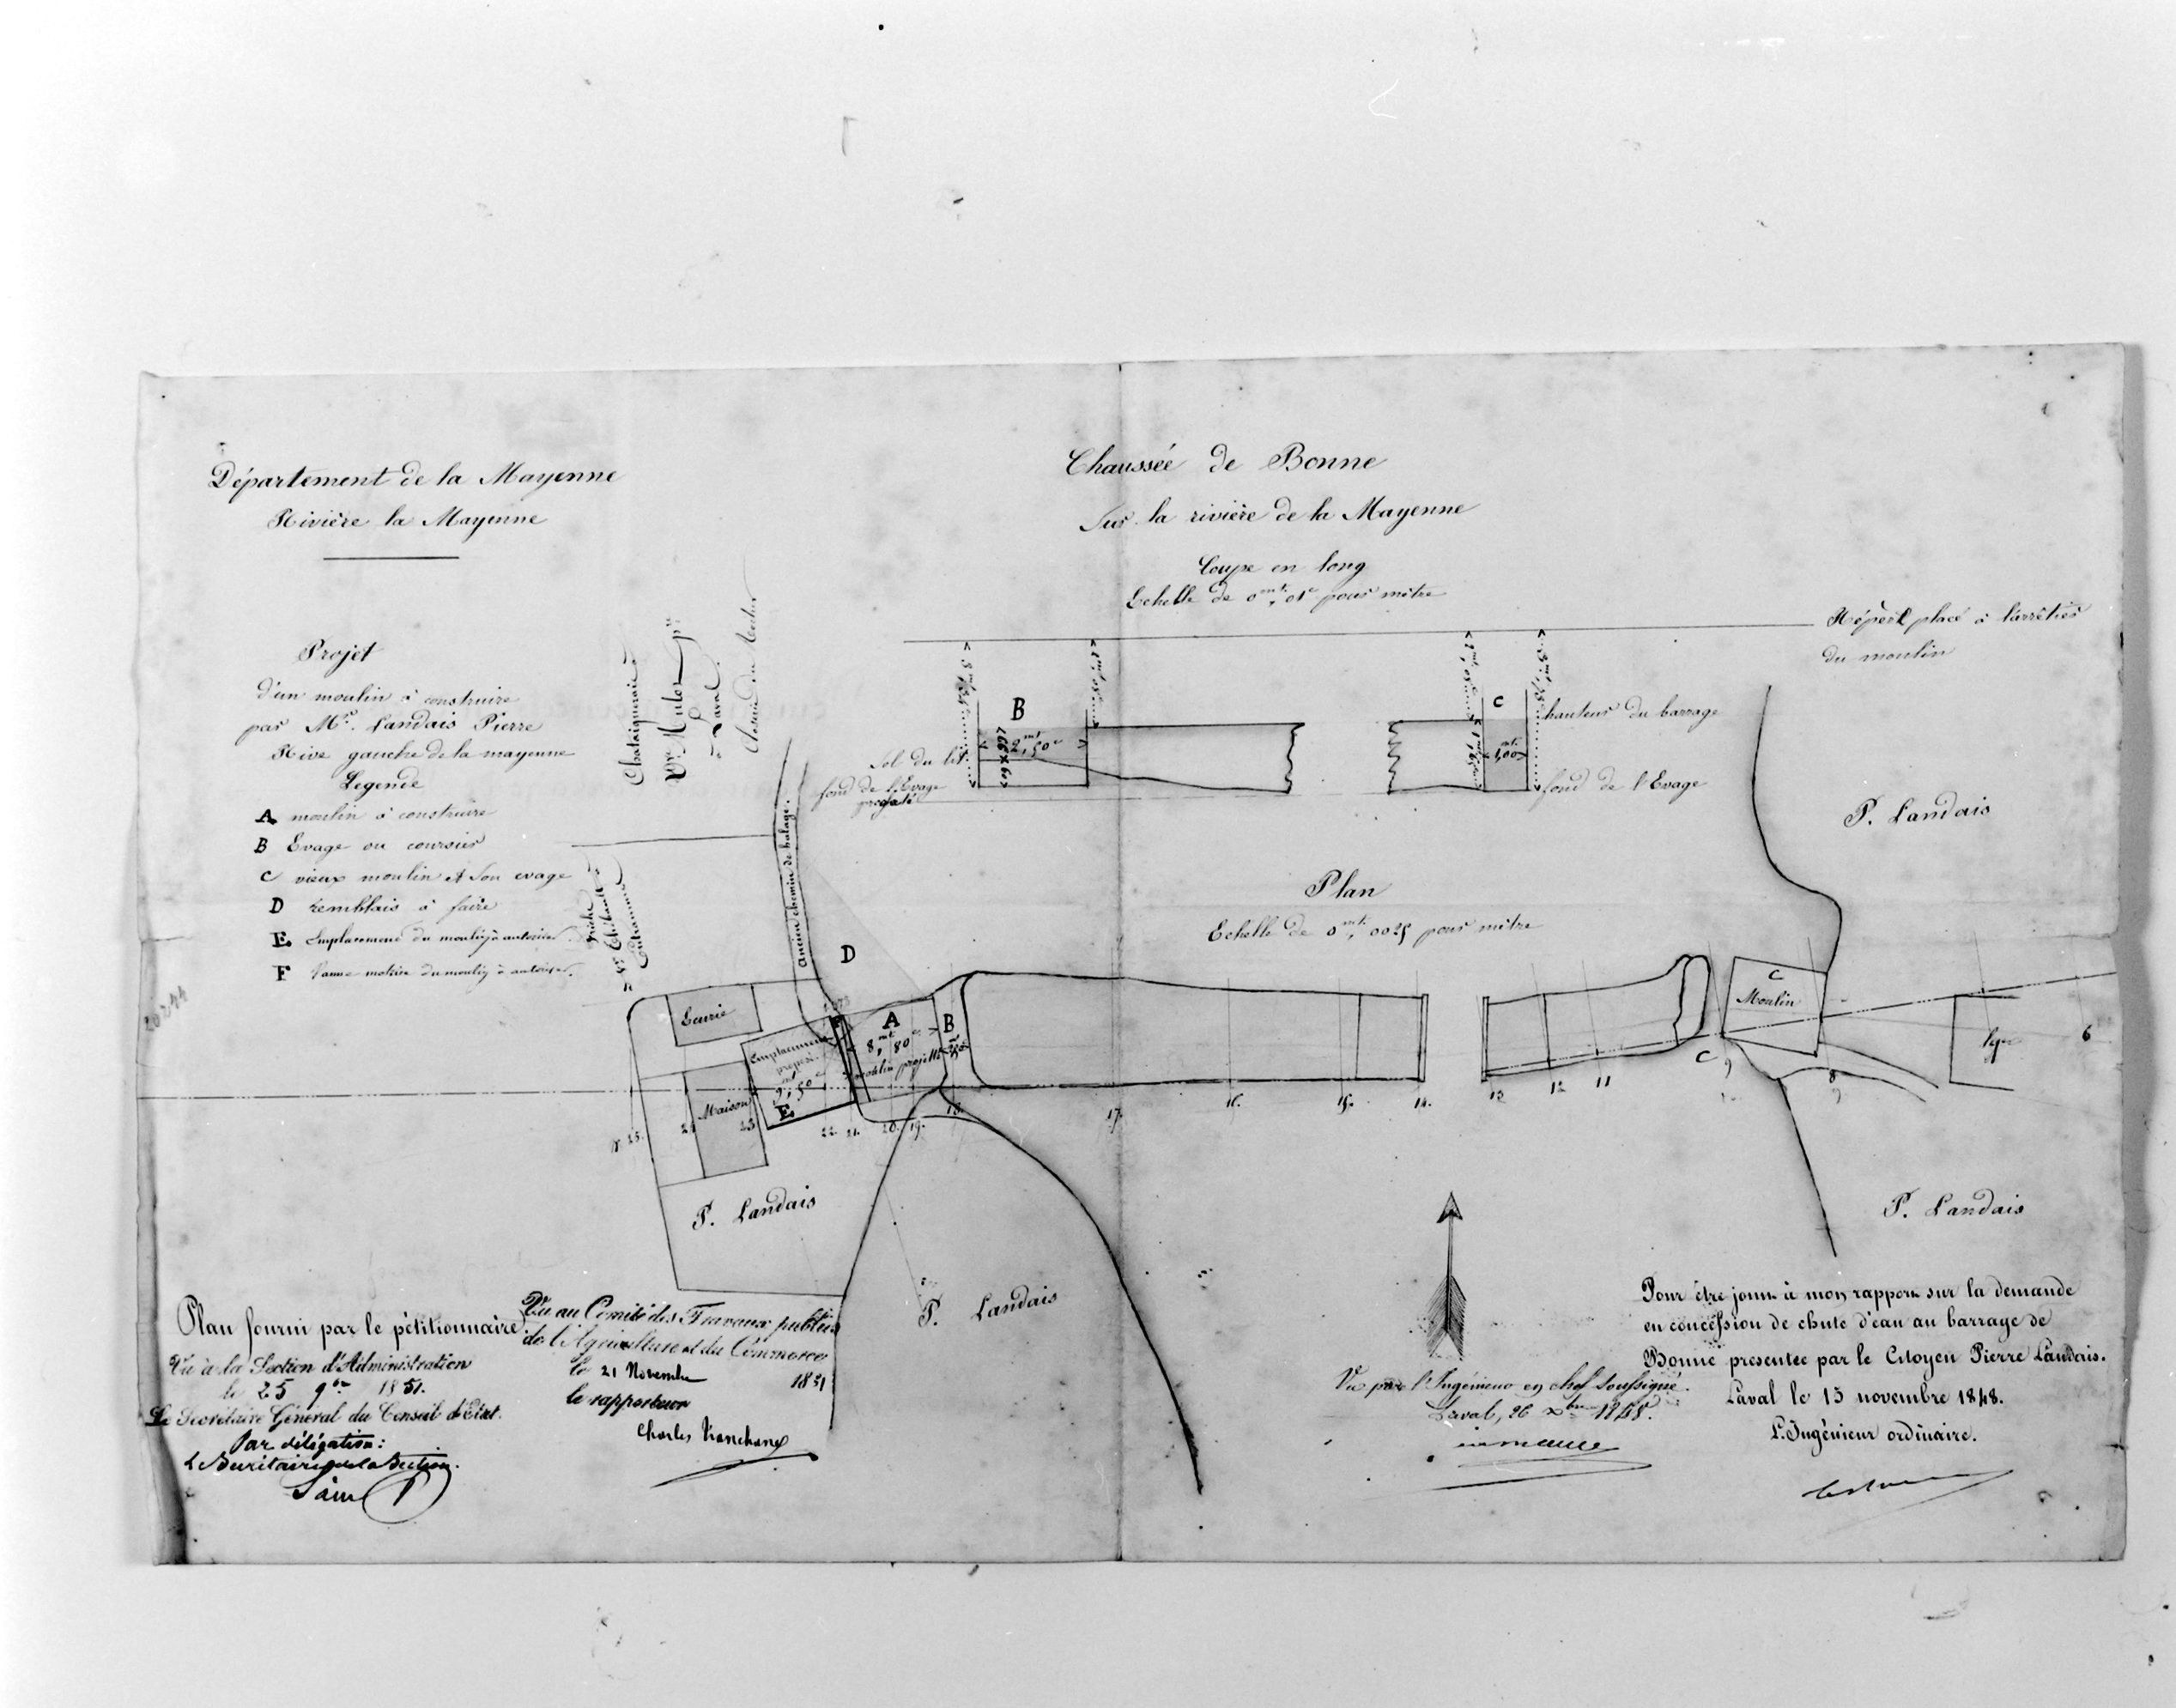 Département de la Mayenne
Rivière la Mayenne
Chaussée de Bonne
Sur la rivière de la Mayenne
Coupe en long
Echelle de 0mt,01c pour mètre
Projet
d'un moulin à construire
par Mr. Landais Pierre
Rive gauche de la mayenne
Légende
A moulin à construire
B Evage ou coursier
C vieux moulin et son evage
D remblais à faire
E Emplacement du moulin à autoriser
F Vanne motrice du moulin à autoriser.
Chataigneraie
Laval
Ancien chemin de halage.
Répère placé à
du moulin
B
2mt,50c
Sol du lit
fond de l'Evage
projeté
C
1,00
hauteur du barrage
fond de l'Evage
P. Landais
Plan
Echelle de 0mt,0025 pour mètre
D
Ecurie
Emplacement
proposé
9,50c
E
Maison
F
A
8mt,80c
moulin projetté
B
C
Moulin
C
6
25. 24 23 22. 21. 20. 19. 18. 17. 16. 15. 14. 13 12 11 9 8
P. Landais
P. Landais
P. Landais
Plan fourni par le pétitionnaire
Vu à la Section d'Administration
le 25 9bre 1851.
Le Secrétaire Général du Conseil d'Etat.
Par délégation:
Le Secrétaire de la Section.
Vu au Comité des Travaux publics
de l'Agriculture et du Commerce
le 21 Novembre 1851
le rapporteur
Charles
Vu par l'Ingénieur en chef soussigné.
Laval, 26 xbre 1848.
Pour être joint à mon rapport sur la demande
en concession de chute d'eau au barrage de
Bonne presentée par le Citoyen Pierre Landais.
Laval le 15 novembre 1848.
L'Ingénieur ordinaire.
20244